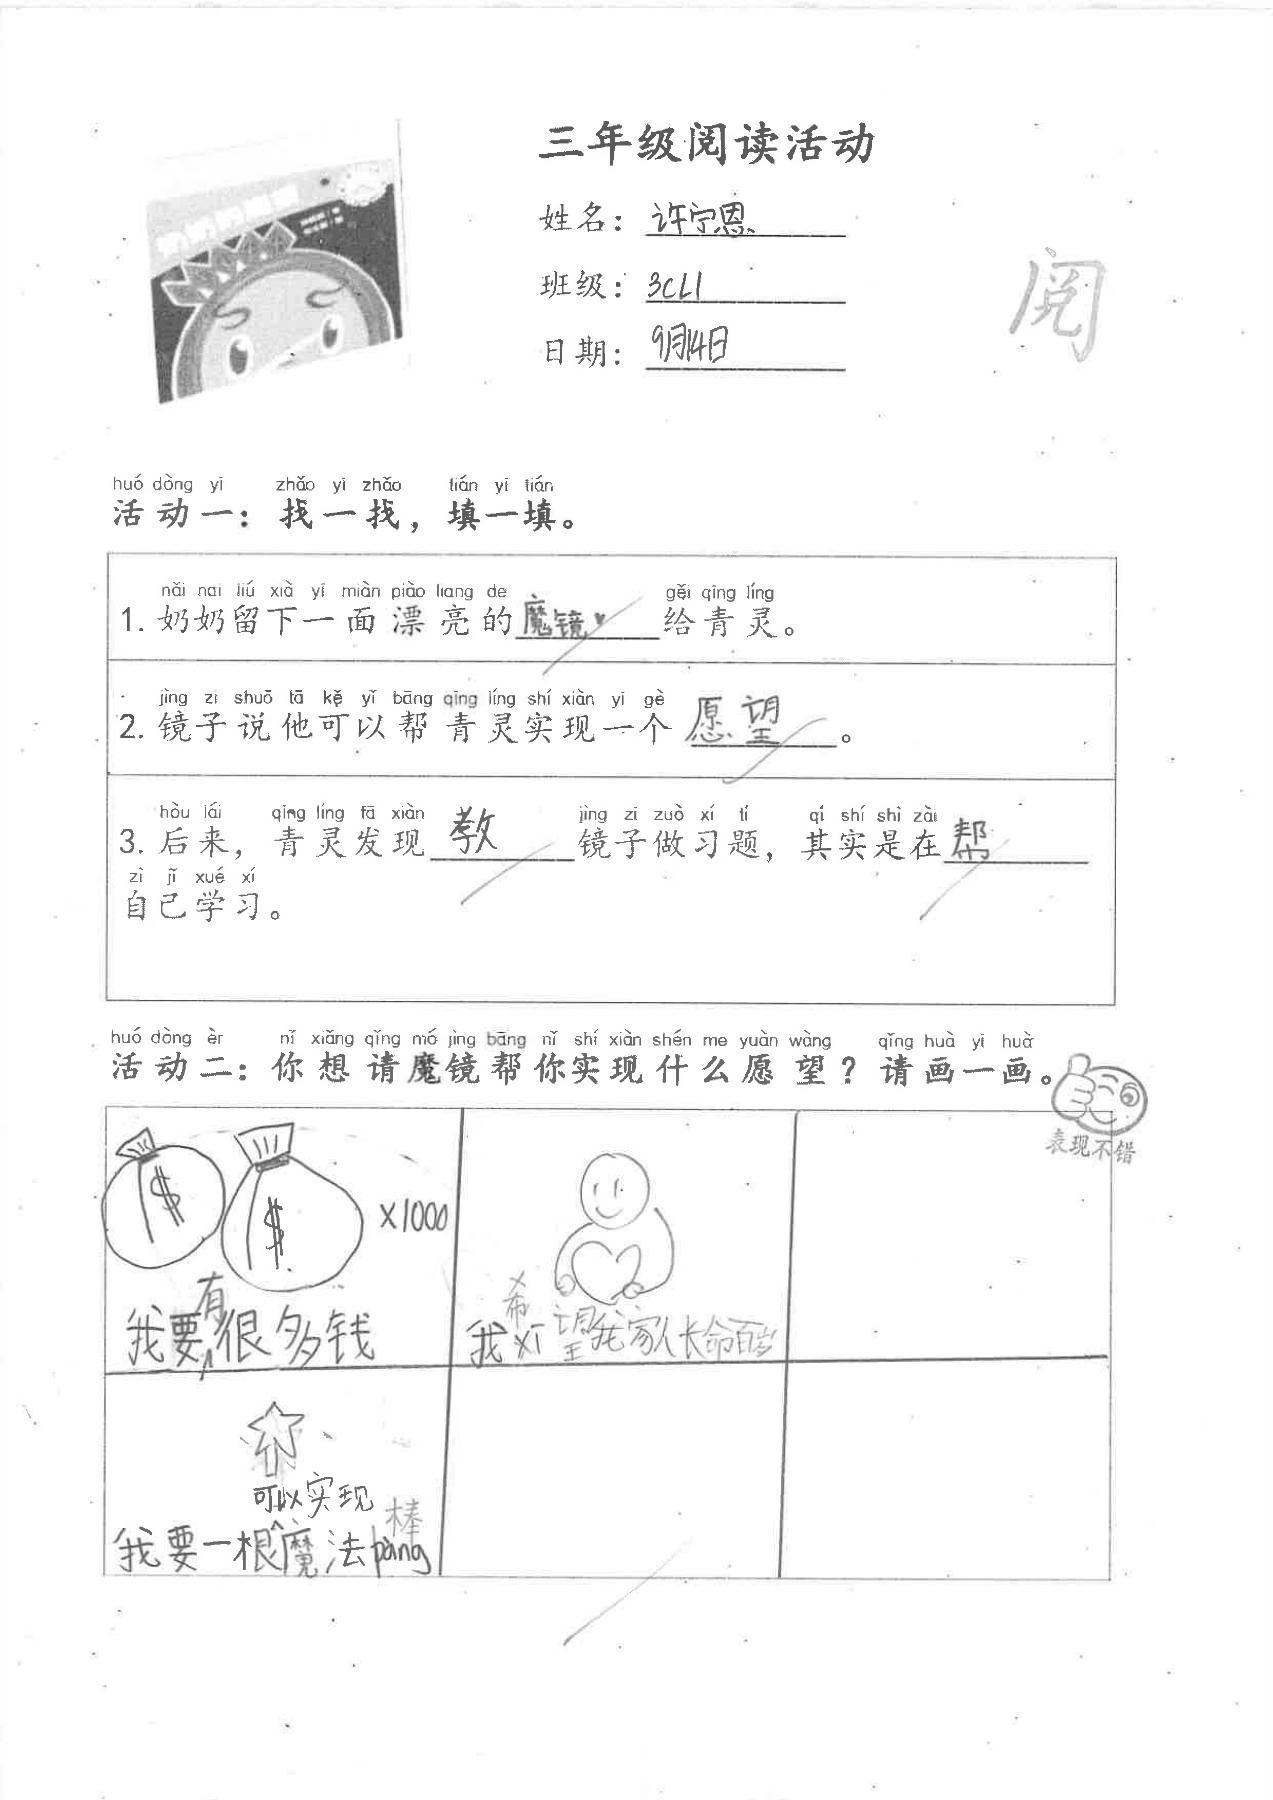 三年级阅读活动
姓名：许宁恩
班级：3CL1
日期：9月14日
阅
huó dòng yī zhǎo yì zhǎo tián yì tián
活动一：找一找，填一填。
nǎi nai liú xià yí miàn piào liang de gěi qīng líng
1. 奶奶留下一面漂亮的魔镜给青灵。
jìng zi shuō tā kě yǐ bāng qīng líng shí xiàn yí gè
2. 镜子说他可以帮青灵实现一个愿望。
hòu lái qīng líng fā xiàn jìng zi zuò xí tí qí shí shì zài
3. 后来，青灵发现教镜子做习题，其实是在帮
zì jǐ xué xí
自己学习。
huó dòng èr nǐ xiǎng qǐng mó jìng bāng nǐ shí xiàn shén me yuàn wàng qǐng huà yí huà
活动二：你想请魔镜帮你实现什么愿望？请画一画。
表现不错
$ $ X1000
有
我要很多钱
希
我xī望我家人长命百岁
可以实现
棒
我要一根魔法bàng